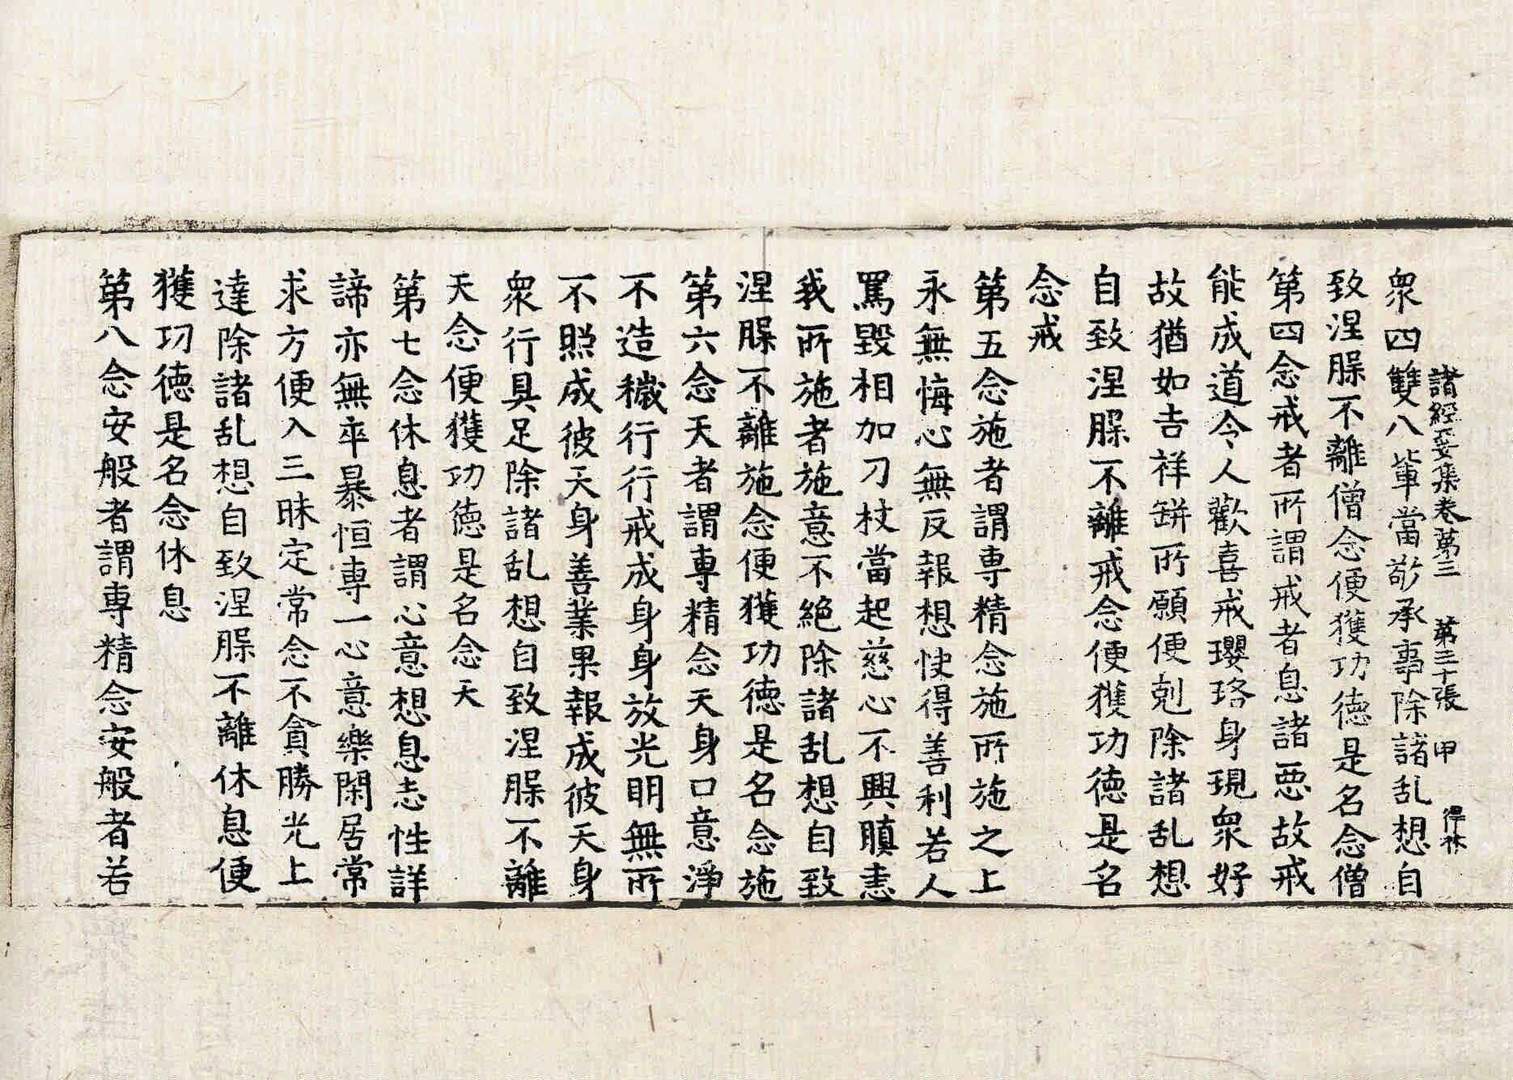 眾四雙八輩當敬承事除諸乱想自
諸經要集卷第三　第三十張　甲
致涅槃不離僧念便獲功德是名念僧
第四念戒者所謂戒者息諸惡故戒
能成道令人歡喜戒瓔珞身現眾好
故猶如吉祥缾所願便剋除諸乱想
自致涅槃不離戒念便獲功德是名
念戒
第五念施者謂專精念施所施之上
永無悔心無反報想快得善利若人
罵毀相加刀杖當起慈心不興瞋恚
我所施者施意不絕除諸乱想自致
涅槃不離施念便獲功德是名念施
第六念天者謂專精念天身口意淨
不造穢行行戒成身身放光明無所
不照成彼天身善業果報成彼天身
眾行具足除諸乱想自致涅槃不離
天念便獲功德是名念天
第七念休息者謂心意想息志性詳
諦亦無卒暴恒專一心意樂閑居常
求方便入三昧定常念不貪勝光上
達除諸乱想自致涅槃不離休息便
獲功德是名念休息
第八念安般者謂專精念安般者若